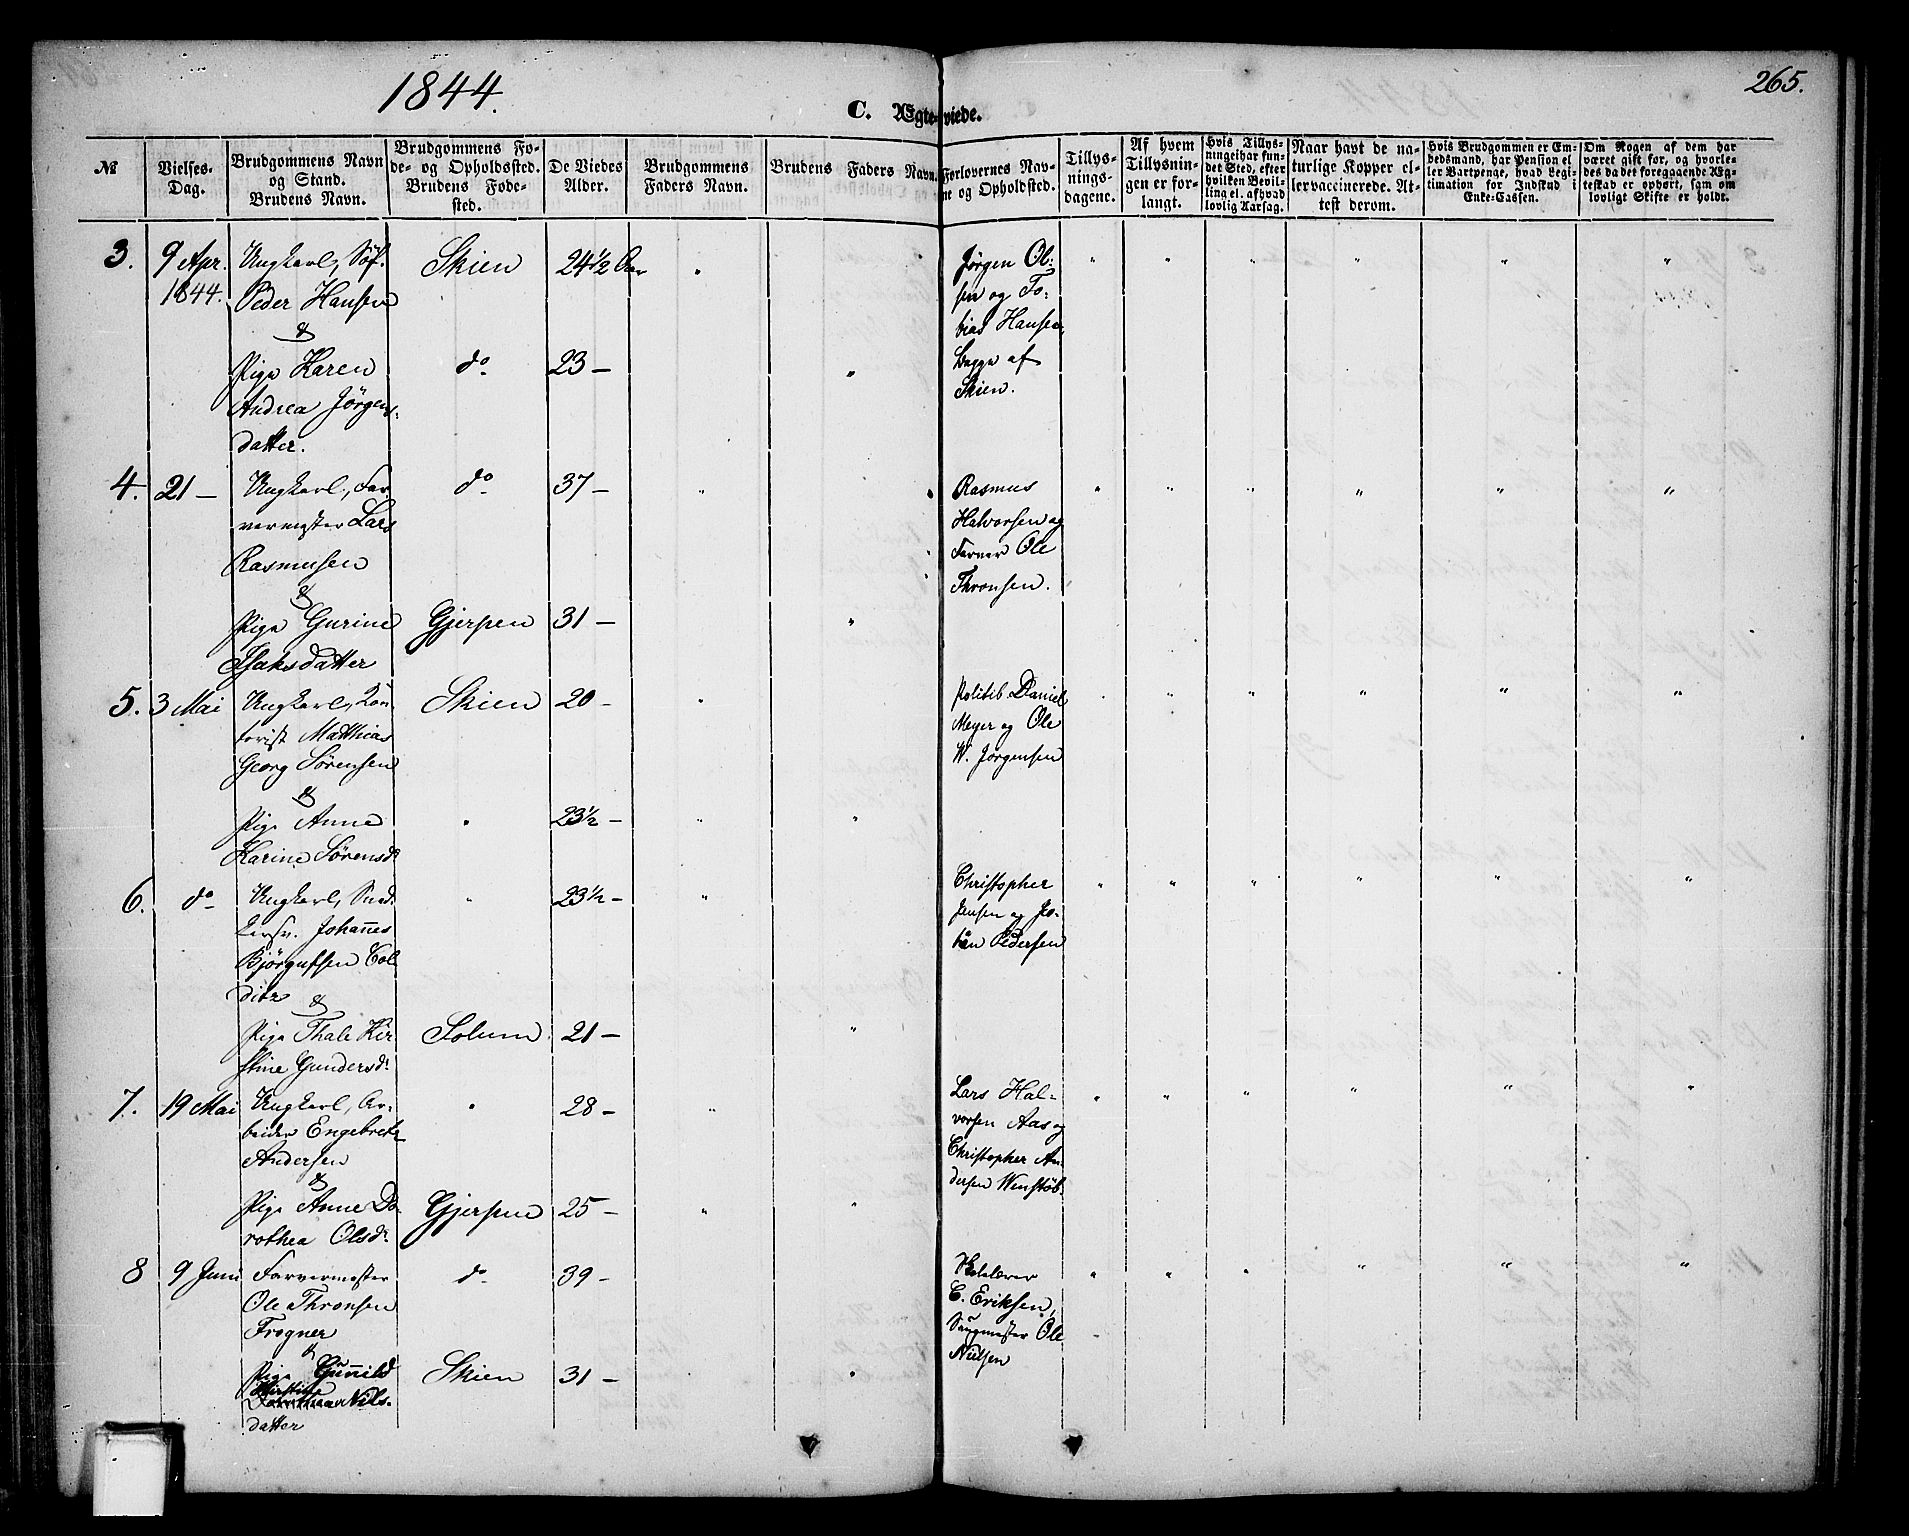 1844.
265.
C. Ægteviede.
№
Vielses-
Dag.
Brudgommens Navn
og Stand.
Brudens Navn.
Brudgommens Fø-
de- og Opholdssted.
Brudens Føde-
sted.
De Viedes
Alder.
Brudgommens
Faders Navn.
Brudens Faders Navn.
Forlovernes Nav-
ne og Opholdsted.
Tillys-
nings-
dagene.
Af hvem
Tillysnin-
gen er for-
langt.
Hvis Tillys-
ningeihar fun-
det Sted, efter
hvilken Bevil-
ling el. afhvad
lovlig Aarsag.
Naar havt de na-
turlige Kopper el-
lervaccinerede. At-
test derom.
Hvis Brudgommen er Em-
bedsmand, har Pension el
ler Vartpenge, hvad Legi-
timation for Indskud i
Enke-Cassen.
Om Nogen af dem har
været gift før, og hvorle-
des da det foregaaende Æg-
teskab er ophørt, sam om
lovligt Skifte er holdt.
3. 9 Apr.
1844.
Ungkarl, Söf.
Peder Hansen
&
Pige Karen
Andrea Jörgens-
datter.
Skien
do
24½ Aar
23 —
Jørgen Ol-
sen og To-
bias Hansen,
Begge af
Skien.
4. 21 —
Ungkarl, Far-
vermester Lars
Rasmusen
&
Pige Gurine
Isaksdatter
do
Gjerpen
37 —
31 —
Rasmus
Halvorsen og
Farver Ole
Thronsen.
5. 3 Mai
Ungkarl, Kon-
torist Matthias
Georg Sörensen
&
Pige Anne
Karine Sörensd.
Skien
20 —
23½ —
Politib. Daniel
Meyer og Ole
W. Jørgensen
6. do
Ungkarl, Sned-
kersv. Johannes
Björgufsen Col
ditz
&
Pige Thale Kir
stine Gundersd.
Solum
23½ —
21 —
Christopher
Jensen og Jo-
han Pedersen
7. 19 Mai
Ungkarl, Ar-
beider Engebret
Andersen
&
Pige Anne Do-
rothea Olsd.
Gjerpen
28 —
25 —
Lars Hal-
vorsen Aas og
Christopher An
dersen Wenstöb
8 9 Juni
Farvermester
Ole Thronsen
Frogner
&
Pige Gunnild
Kirstine
Nils-
datter
do
Skien
39 —
31 —
C. Eriksen,
Ole
Nielsen